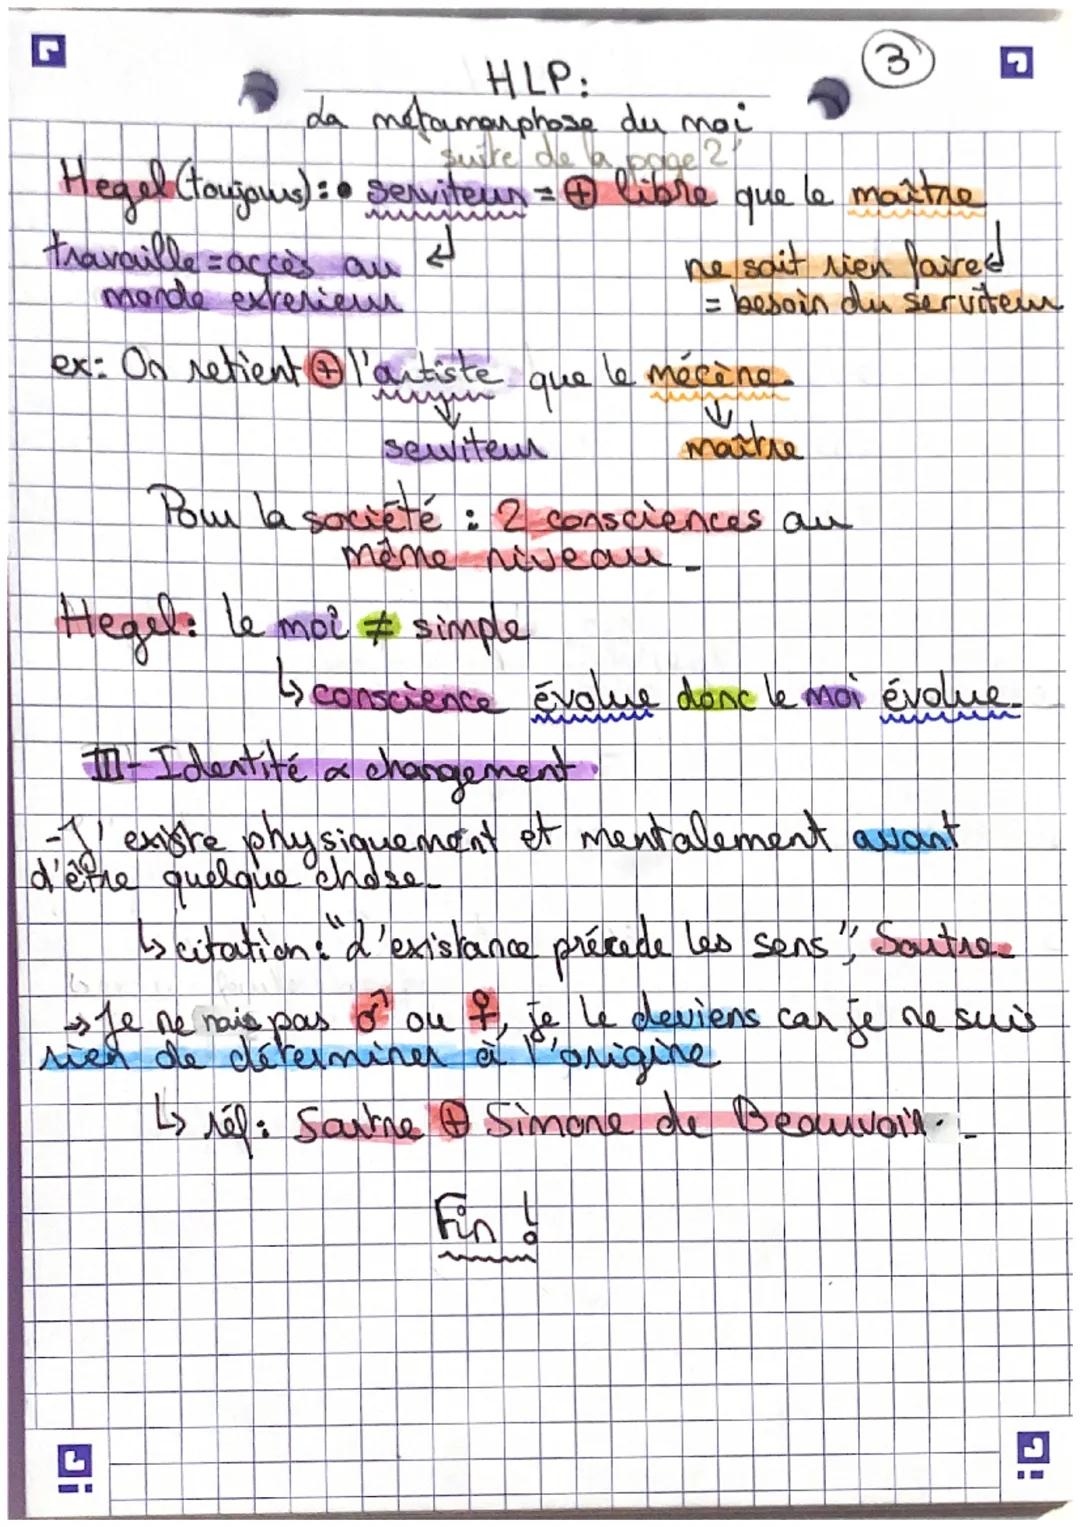 3
HLP:
La métamorphose du moi
suite de la page 2
Hegel (toujours): • serviteur = ⊕ libre que le maître
travaille = accès au
monde exterieur
ne sait rien faire
= besoin du serviteur
ex: On retient ⊕ l'artiste que le mécène.
↓ ↓
serviteur maître
Pour la société : 2 consciences au
même niveau.
Hegel: le moi ≠ simple
↳ conscience évolue donc le moi évolue.
III- Identité & changement
- J'existe physiquement et mentalement avant
d'être quelque chose.
↳ citation: "L'existance précède les sens", Sartre
→ Je ne nais pas ♂ ou ♀, je le deviens car je ne suis
rien de déterminer à l'origine
↳ réf: Sartre ⊕ Simone de Beauvoir.
Fin !